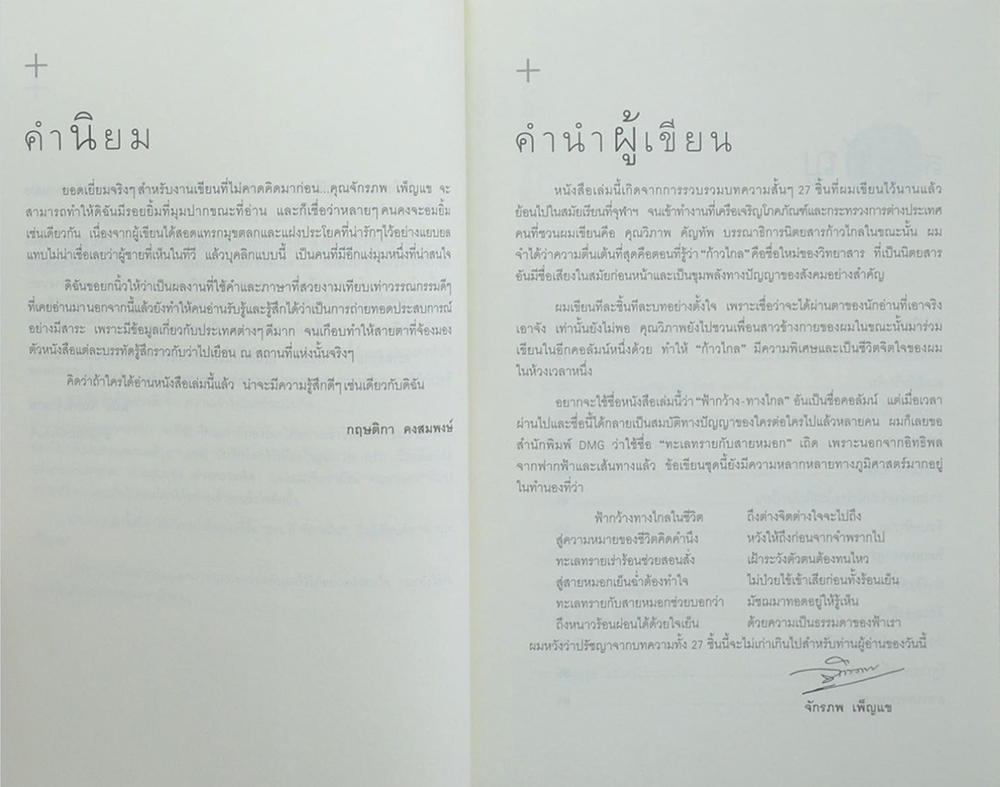 คำนิยม
ยอดเยี่ยมจริงๆ สำหรับงานเขียนที่ไม่คาดคิดมาก่อน...คุณจักรภพ เพ็ญแข จะ
สามารถทำให้ดิฉันมีรอยยิ้มที่มุมปากขณะที่อ่าน และก็เชื่อว่าหลายๆ คนคงจะอมยิ้ม
เช่นเดียวกัน เนื่องจากผู้เขียนได้สอดแทรกมุขตลกและแฝงประโยคที่น่ารักๆ ไว้อย่างแยบยล
แทบไม่น่าเชื่อเลยว่าผู้ชายที่เห็นในทีวี แล้วบุคลิกแบบนี้ เป็นคนที่มีอีกแง่มุมหนึ่งที่น่าสนใจ
ดิฉันขอยกนิ้วให้ว่าเป็นผลงานที่ใช้คำและภาษาที่สวยงามเทียบเท่าวรรณกรรมดีๆ
ที่เคยอ่านมานอกจากนี้แล้วยังทำให้คนอ่านรับรู้และรู้สึกได้ว่าเป็นการถ่ายทอดประสบการณ์
อย่างมีสาระ เพราะมีข้อมูลเกี่ยวกับประเทศต่างๆ ดีมาก จนเกือบทำให้สายตาที่จ้องมอง
ตัวหนังสือแต่ละบรรทัดรู้สึกราวกับว่าไปเยือน ณ สถานที่แห่งนั้นจริงๆ
คิดว่าถ้าใครได้อ่านหนังสือเล่มนี้แล้ว น่าจะมีความรู้สึกดีๆ เช่นเดียวกับดิฉัน
กฤษติกา คงสมพงษ์
คำนำผู้เขียน
หนังสือเล่มนี้เกิดจากการรวบรวมบทความสั้นๆ 27 ชิ้นที่ผมเขียนไว้นานแล้ว
ย้อนไปในสมัยเรียนที่จุฬาฯ จนเข้าทำงานที่เครือเจริญโภคภัณฑ์และกระทรวงการต่างประเทศ
คนที่ชวนผมเขียนคือ คุณวิภาพ คัญทัพ บรรณาธิการนิตยสารก้าวไกลในขณะนั้น ผม
จำได้ว่าความตื่นเต้นที่สุดคือตอนที่รู้ว่า "ก้าวไกล" คือชื่อใหม่ของวิทยาสาร ที่เป็นนิตยสาร
อันมีชื่อเสียงในสมัยก่อนหน้าและเป็นขุมพลังทางปัญญาของสังคมอย่างสำคัญ
ผมเขียนทีละชิ้นทีละบทอย่างตั้งใจ เพราะเชื่อว่าจะได้ผ่านตาของนักอ่านที่เอาจริง
เอาจัง เท่านั้นยังไม่พอ คุณวิภาพยังไปชวนเพื่อนสาวข้างกายของผมในขณะนั้นมาร่วม
เขียนในอีกคอลัมน์หนึ่งด้วย ทำให้ "ก้าวไกล" มีความพิเศษและเป็นชีวิตจิตใจของผม
ในห้วงเวลาหนึ่ง
อยากจะใช้ชื่อหนังสือเล่มนี้ว่า "ฟ้ากว้าง-ทางไกล" อันเป็นชื่อคอลัมน์ แต่เมื่อเวลา
ผ่านไปและชื่อนี้ได้กลายเป็นสมบัติทางปัญญาของใครต่อใครไปแล้วหลายคน ผมก็เลยขอ
สำนักพิมพ์ DMG ว่าใช้ชื่อ "ทะเลทรายกับสายหมอก" เถิด เพราะนอกจากอิทธิพล
จากฟากฟ้าและเส้นทางแล้ว ข้อเขียนชุดนี้ยังมีความหลากหลายทางภูมิศาสตร์มากอยู่
ในทำนองที่ว่า
ฟ้ากว้างทางไกลในชีวิต ถึงต่างจิตต่างใจจะไปถึง
สู่ความหมายของชีวิตคิดคำนึง หวังให้ถึงก่อนจากจำพรากไป
ทะเลทรายเร่าร้อนช่วยสอนสั่ง เฝ้าระวังตัวตนต้องทนไหว
สู่สายหมอกเย็นฉ่ำต้องทำใจ ไม่ป่วยไข้เข้าเสียก่อนทั้งร้อนเย็น
ทะเลทรายกับสายหมอกช่วยบอกว่า มัชฌมาทอดอยู่ให้รู้เห็น
ถึงหนาวร้อนผ่อนได้ด้วยใจเย็น ด้วยความเป็นธรรมดาของฟ้าเรา
ผมหวังว่าปรัชญาจากบทความทั้ง 27 ชิ้นนี้จะไม่เก่าเกินไปสำหรับท่านผู้อ่านของวันนี้
จักรภพ เพ็ญแข